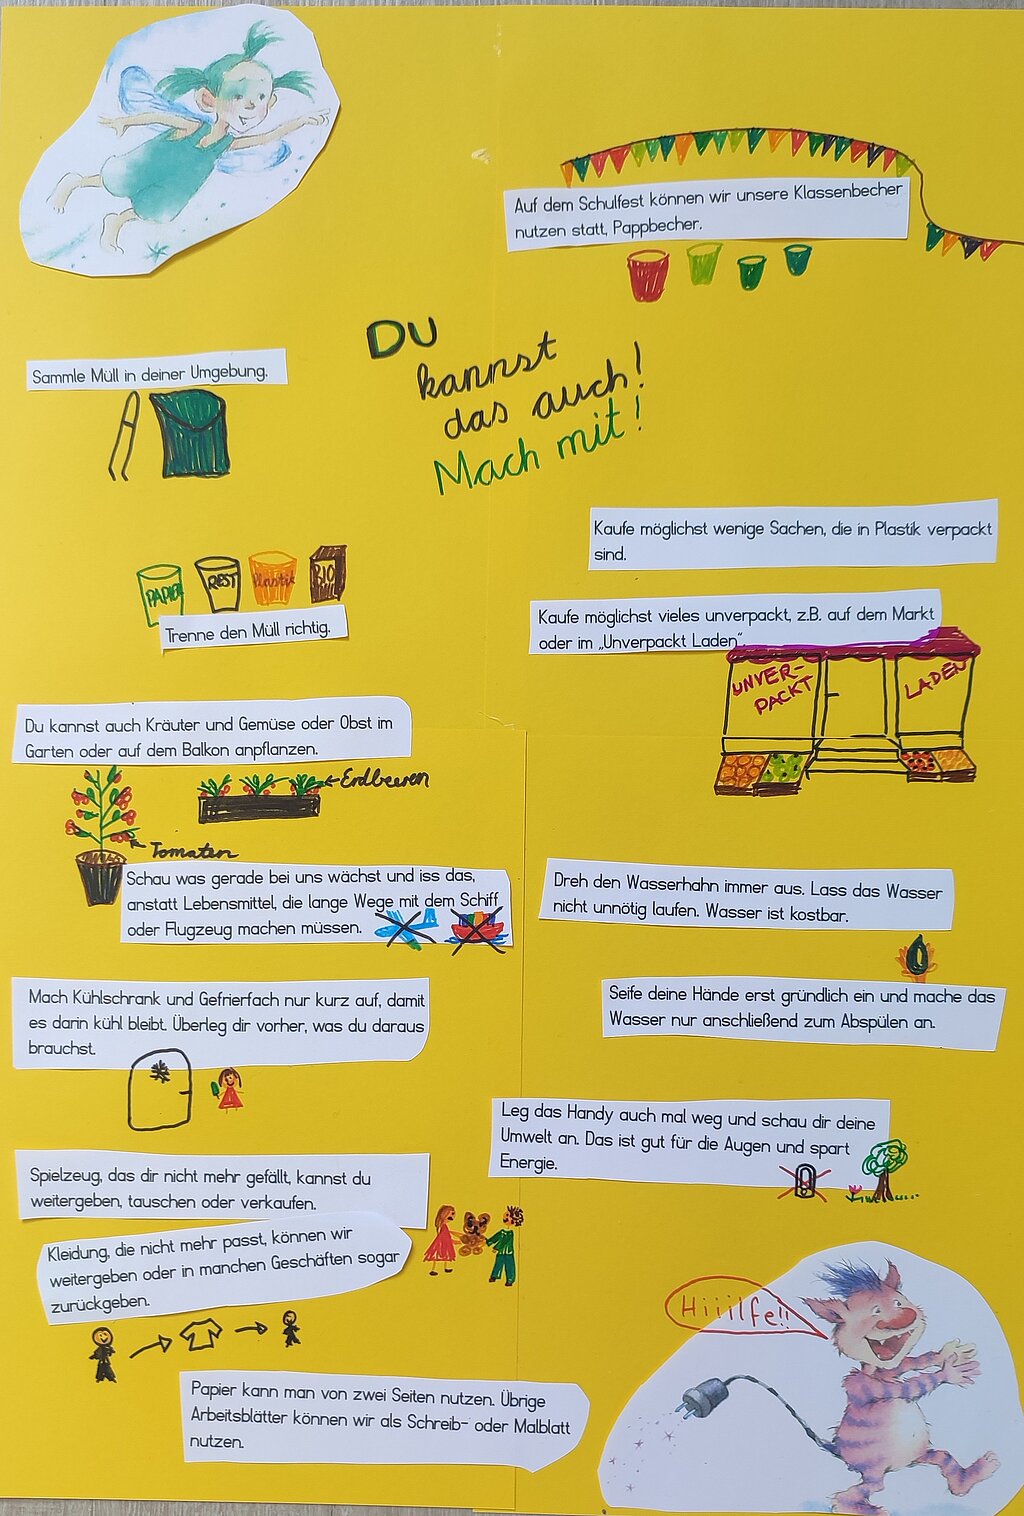 Auf dem Schulfest können wir unsere Klassenbecher
nutzen statt, Pappbecher.
DU
kannst
das auch!
Mach mit!
Sammle Müll in deiner Umgebung.
Kaufe möglichst wenige Sachen, die in Plastik verpackt
sind.
PAPIER
REST
Plastik
BIO
Trenne den Müll richtig.
Kaufe möglichst vieles unverpackt, z.B. auf dem Markt
oder im „Unverpackt Laden“.
UNVER-
PACKT
LADEN
Du kannst auch Kräuter und Gemüse oder Obst im
Garten oder auf dem Balkon anpflanzen.
Erdbeeren
Tomaten
Schau was gerade bei uns wächst und iss das,
anstatt Lebensmittel, die lange Wege mit dem Schiff
oder Flugzeug machen müssen.
Dreh den Wasserhahn immer aus. Lass das Wasser
nicht unnötig laufen. Wasser ist kostbar.
Seife deine Hände erst gründlich ein und mache das
Wasser nur anschließend zum Abspülen an.
Mach Kühlschrank und Gefrierfach nur kurz auf, damit
es darin kühl bleibt. Überleg dir vorher, was du daraus
brauchst.
Leg das Handy auch mal weg und schau dir deine
Umwelt an. Das ist gut für die Augen und spart
Energie.
Spielzeug, das dir nicht mehr gefällt, kannst du
weitergeben, tauschen oder verkaufen.
Kleidung, die nicht mehr passt, können wir
weitergeben oder in manchen Geschäften sogar
zurückgeben.
Hiiilfe!!
Papier kann man von zwei Seiten nutzen. Übrige
Arbeitsblätter können wir als Schreib- oder Malblatt
nutzen.